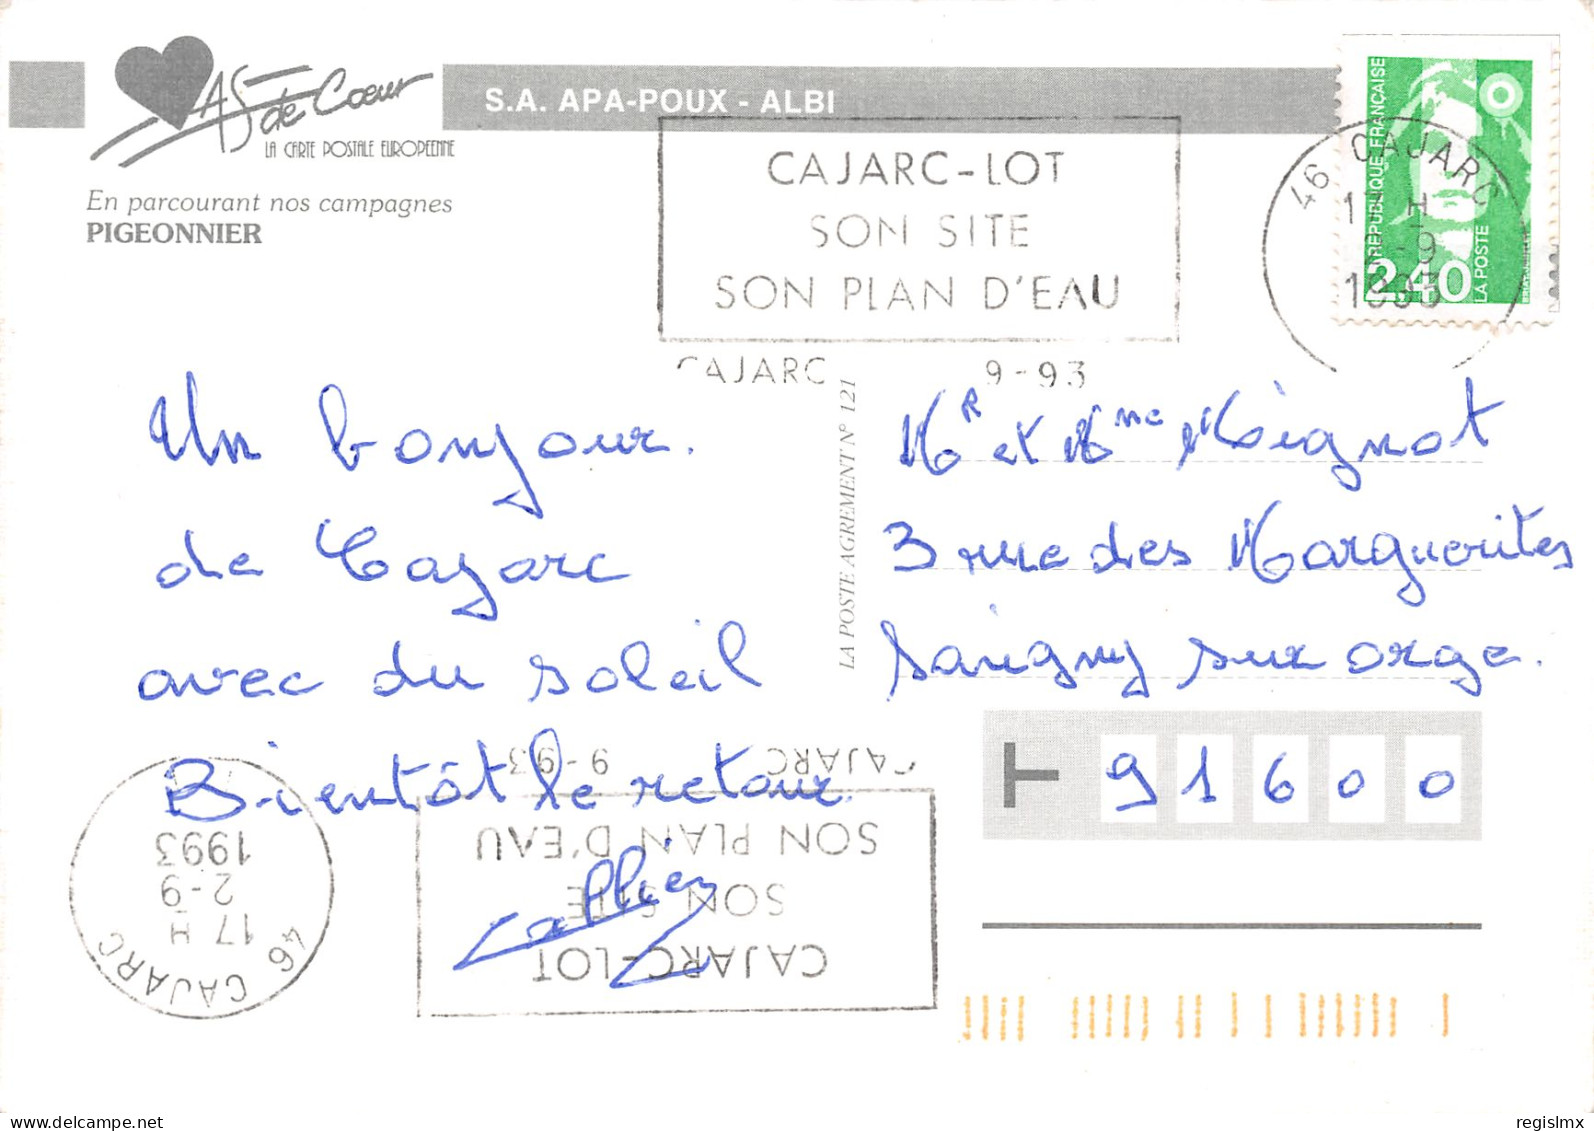 AS de Cœur
LA CARTE POSTALE EUROPEENNE
S.A. APA-POUX - ALBI
En parcourant nos campagnes
PIGEONNIER
CAJARC-LOT
SON SITE
SON PLAN D'EAU
CAJARC 9-93
46 CAJARC
17 H
2-9
1993
RÉPUBLIQUE FRANÇAISE
2,40
LA POSTE
Un bonjour.
de Cajarc
avec du soleil
Bientôt le retour.
LA POSTE AGREMENT N° 121
Mr et Mme Mignot
3 rue des Marguerites
Savigny sur orge.
91600
CAJARC 9-93
SON PLAN D'EAU
SON SITE
CAJARC-LOT
46 CAJARC
17 H
2-9
1993
delcampe.net
regislmx